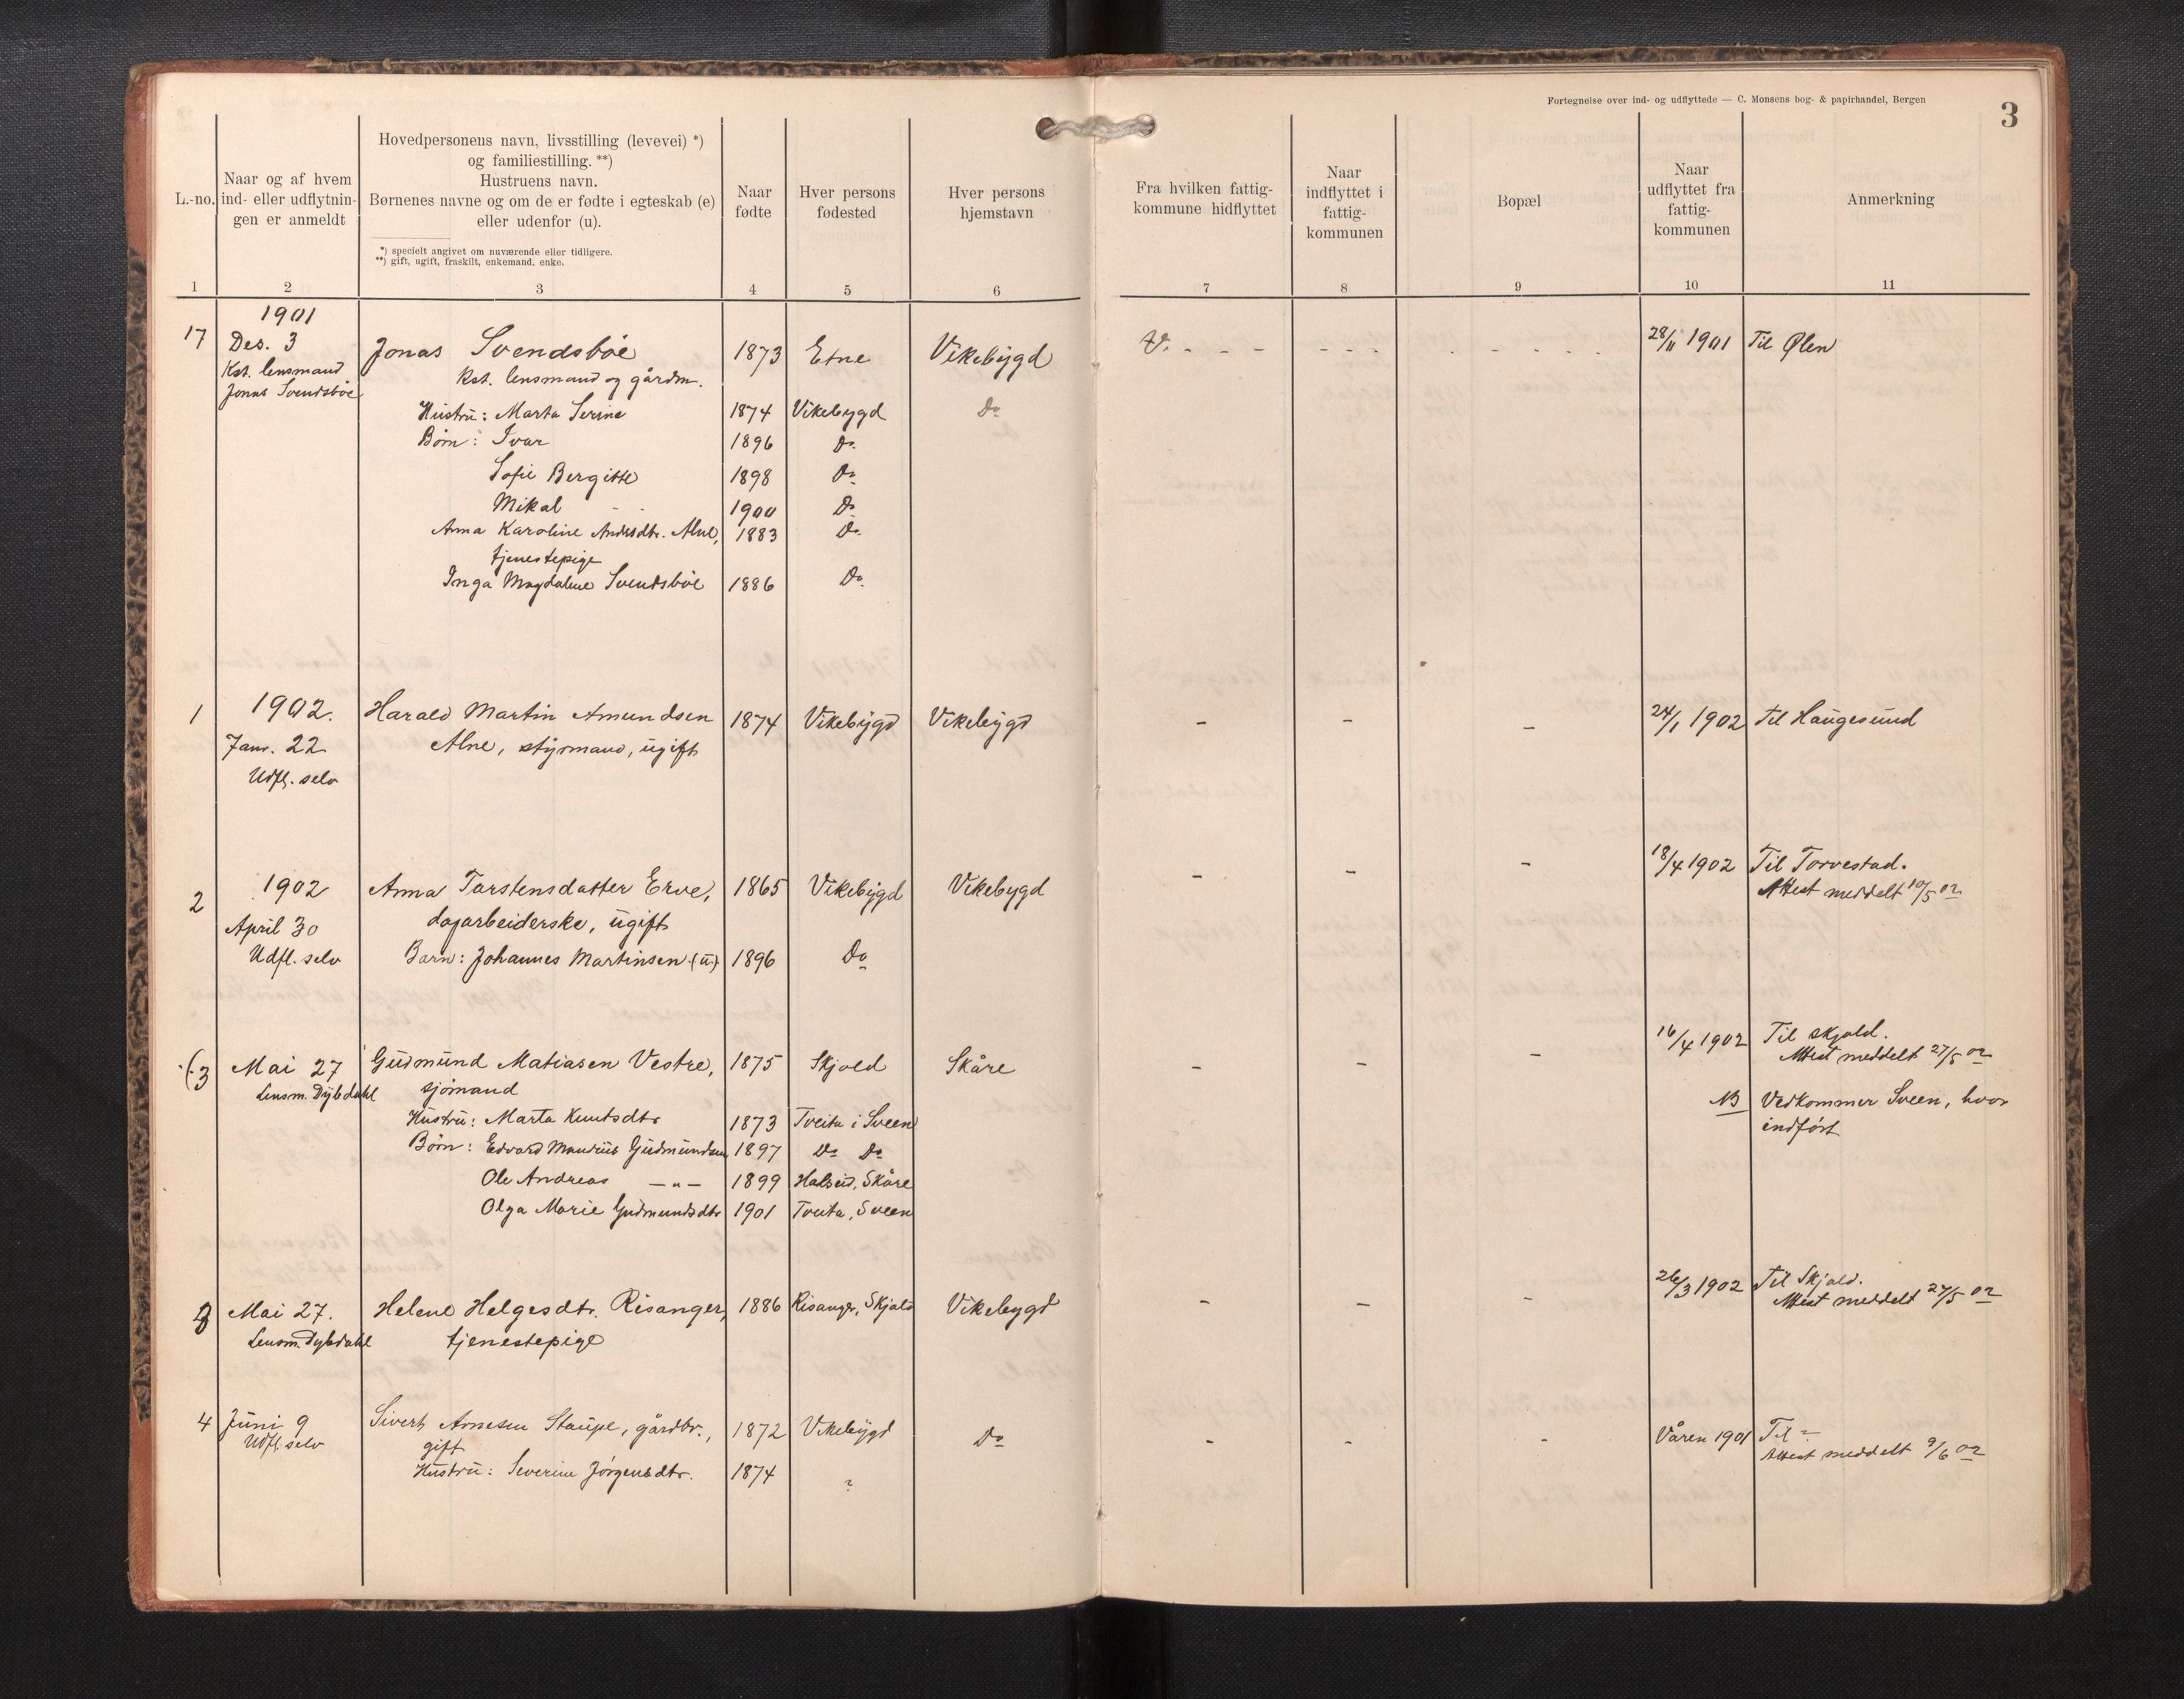 Fortegnelse over ind- og udflyttede — C. Monsens bog- & papirhandel, Bergen
3
L.-no.
Naar og af hvem
ind- eller udflytnin-
gen er anmeldt
Hovedpersonens navn, livsstilling (levevei) *)
og familiestilling. **)
Hustruens navn.
Børnenes navne og om de er fødte i egteskab (e)
eller udenfor (u).
*) specielt angivet om nuværende eller tidligere.
**) gift, ugift, fraskilt, enkemand, enke.
Naar
fødte
Hver persons
fødested
Hver persons
hjemstavn
Fra hvilken fattig-
kommune hidflyttet
Naar
indflyttet i
fattig-
kommunen
Bopæl
Naar
udflyttet fra
fattig-
kommunen
Anmerkning
1 2 3 4 5 6 7 8 9 10 11
1901
17 Des. 3 Jonas Svendsbøe 1873 Etne Vikebygd V. - - - - - - - - - - - 28/11 1901 Til Ølen
Kst. lensmand
Kst. lensmand og gårdm.
Jonas Svendsbøe
Hustru: Marta Serine 1874 Vikebygd Do
Børn: Ivar 1896 Do
Sofie Bergitte 1898 Do
Mikal 1900 Do
Anna Karoline Andersdtr. Alne, 1883 Do
tjenestepige
Inga Magdalene Svendsbøe 1886 Do
1 1902. Harald Martin Amundsen 1874 Vikebygd Vikebygd - - - 24/1 1902 Til Haugesund
Janr. 22 Alne, styrmand, ugift
Udfl. selv
18/4 1902 Til Torvestad.
2 1902 Anna Torstensdatter Erve, 1865 Vikebygd Vikebygd - - - Attest meddelt 10/5 02
April 30 dagarbeiderske, ugift
Udfl. selv Barn: Johannes Martinsen (u) 1896 Do
16/4 1902 Til Skjold.
3 Mai 27 Gudmund Matiasen Vestre, 1875 Skjold Skåre - - - Attest meddelt 27/5 02
Lensm. Dybdahl sjømand
NB Vedkommer Sveen, hvor
indført
Hustru: Marta Knutsdtr 1873 Tveita i Sveen
Børn: Edvard Maurius Gudmundsen 1897 Do Do
Ole Andreas —"— 1899 Halseid, Skåre
Olga Marie Gudmundsdtr 1901 Tveita, Sveen
26/3 1902 Til Skjold.
3 Mai 27. Helene Helgesdtr. Risanger, 1886 Risanger, Skjold Vikebygd - - - Attest meddelt 27/5 02
Lensm. Dybdahl tjenestepige
4 Juni 9 Sivert Arnesen Staupe, gårdbr., 1872 Vikebygd Do - - - Våren 1901 Til -
Udfl. selv gift Attest meddelt 9/6 02
Hustru: Severine Jørgensdtr. 1874 ?